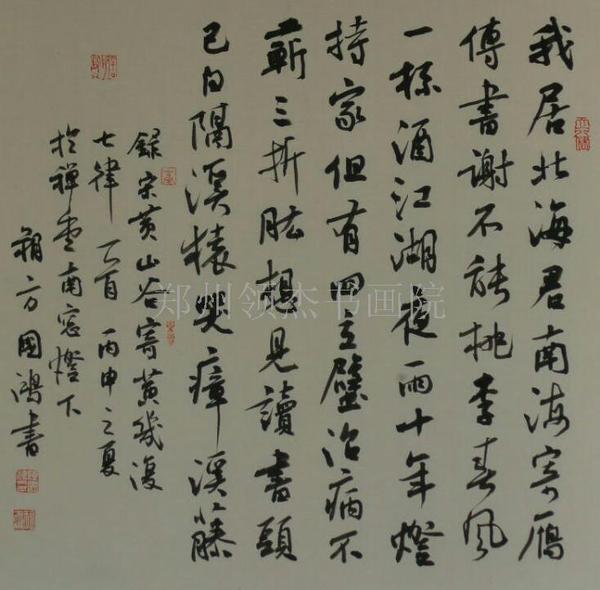 我居北海君南海寄雁
傳書謝不能桃李春風
一杯酒江湖夜雨十年燈
持家但有四立壁治病不
蘄三折肱想見讀書頭
已白隔溪猿哭瘴溪藤
錄宋黄山谷寄黄幾復
七律一首 丙申之夏
於禪畫南窗燈下
朔方國鴻書
郑州领杰书画院